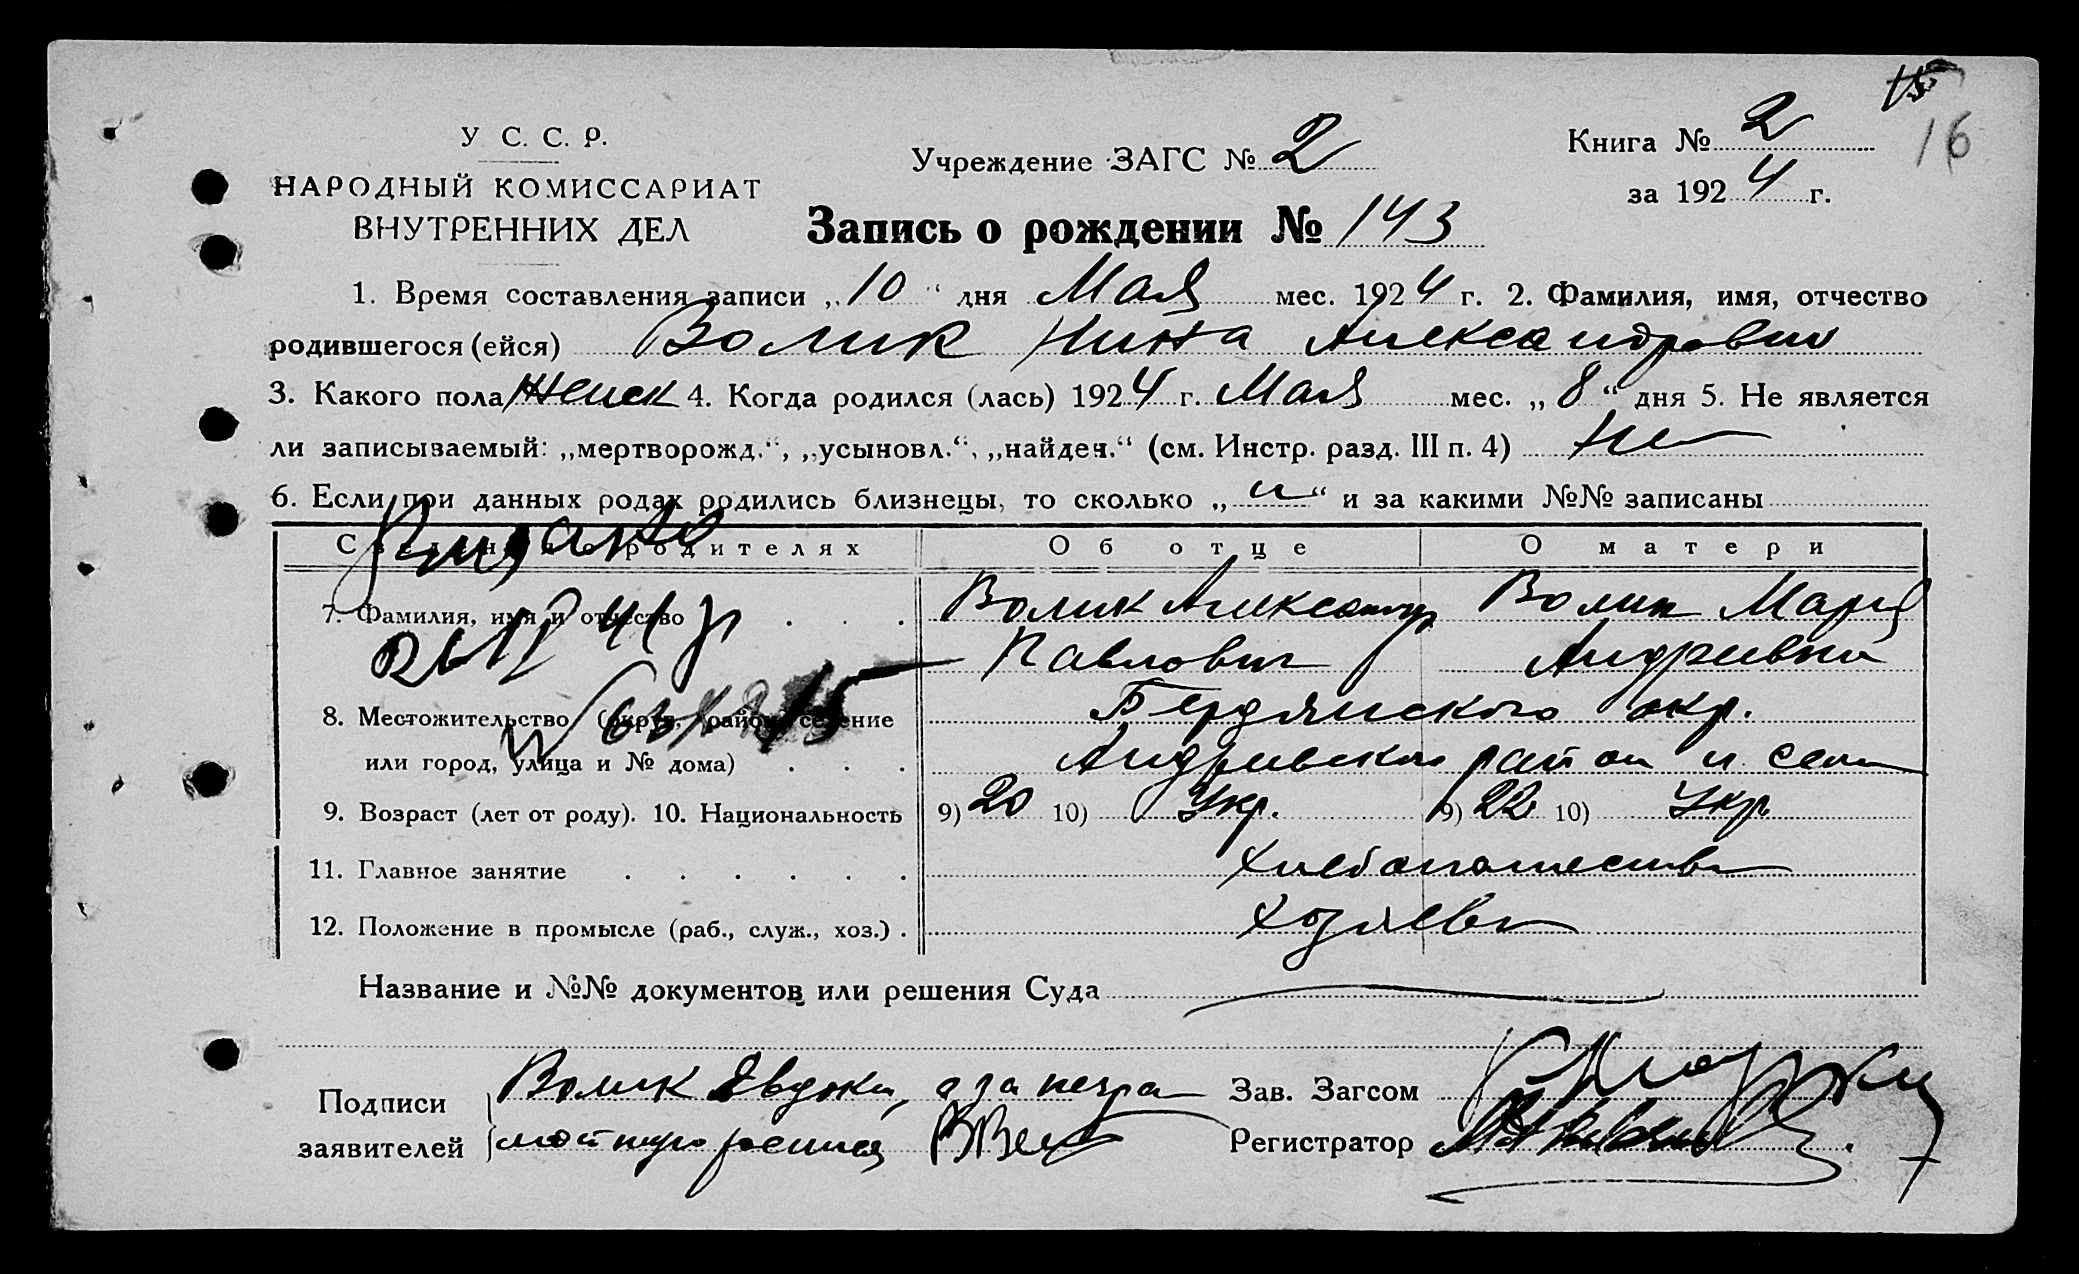 15
16
У С. С. Р.
НАРОДНЫЙ КОМИССАРИАТ
ВНУТРЕННИХ ДЕЛ
Учреждение ЗАГС № 2
Книга № 2
за 1924 г.
Запись о рождении № 143
1. Время составления записи „10“ дня Мая мес. 1924 г. 2. Фамилия, имя, отчество
родившегося (ейся) Волик Нина Александровна
3. Какого пола Женск 4. Когда родился (лась) 1924 г. Мая мес. „8“ дня 5. Не является
ли записываемый: „мертворожд.“, „усыновл.“, „найден.“ (см. Инстр. разд. III п. 4) Не
6. Если при данных родах родились близнецы, то сколько „ “ и за какими №№ записаны
Сведения о родителях Об отце О матери
7. Фамилия, имя и отчество Волик Александр Волик Мария
Павлович Андреевна
8. Местожительство (округ, район, селение Бердянского окр.
или город, улица и № дома) Андреевского район и села
9. Возраст (лет от роду). 10. Национальность 9) 20 10) Укр. 9) 22 10) Укр
11. Главное занятие Хлебопашество
12. Положение в промысле (раб., служ., хоз.) Хозяева
Название и №№ документов или решения Суда
Подписи заявителей Волик а за негра
мотную
Зав. Загсом
Регистратор